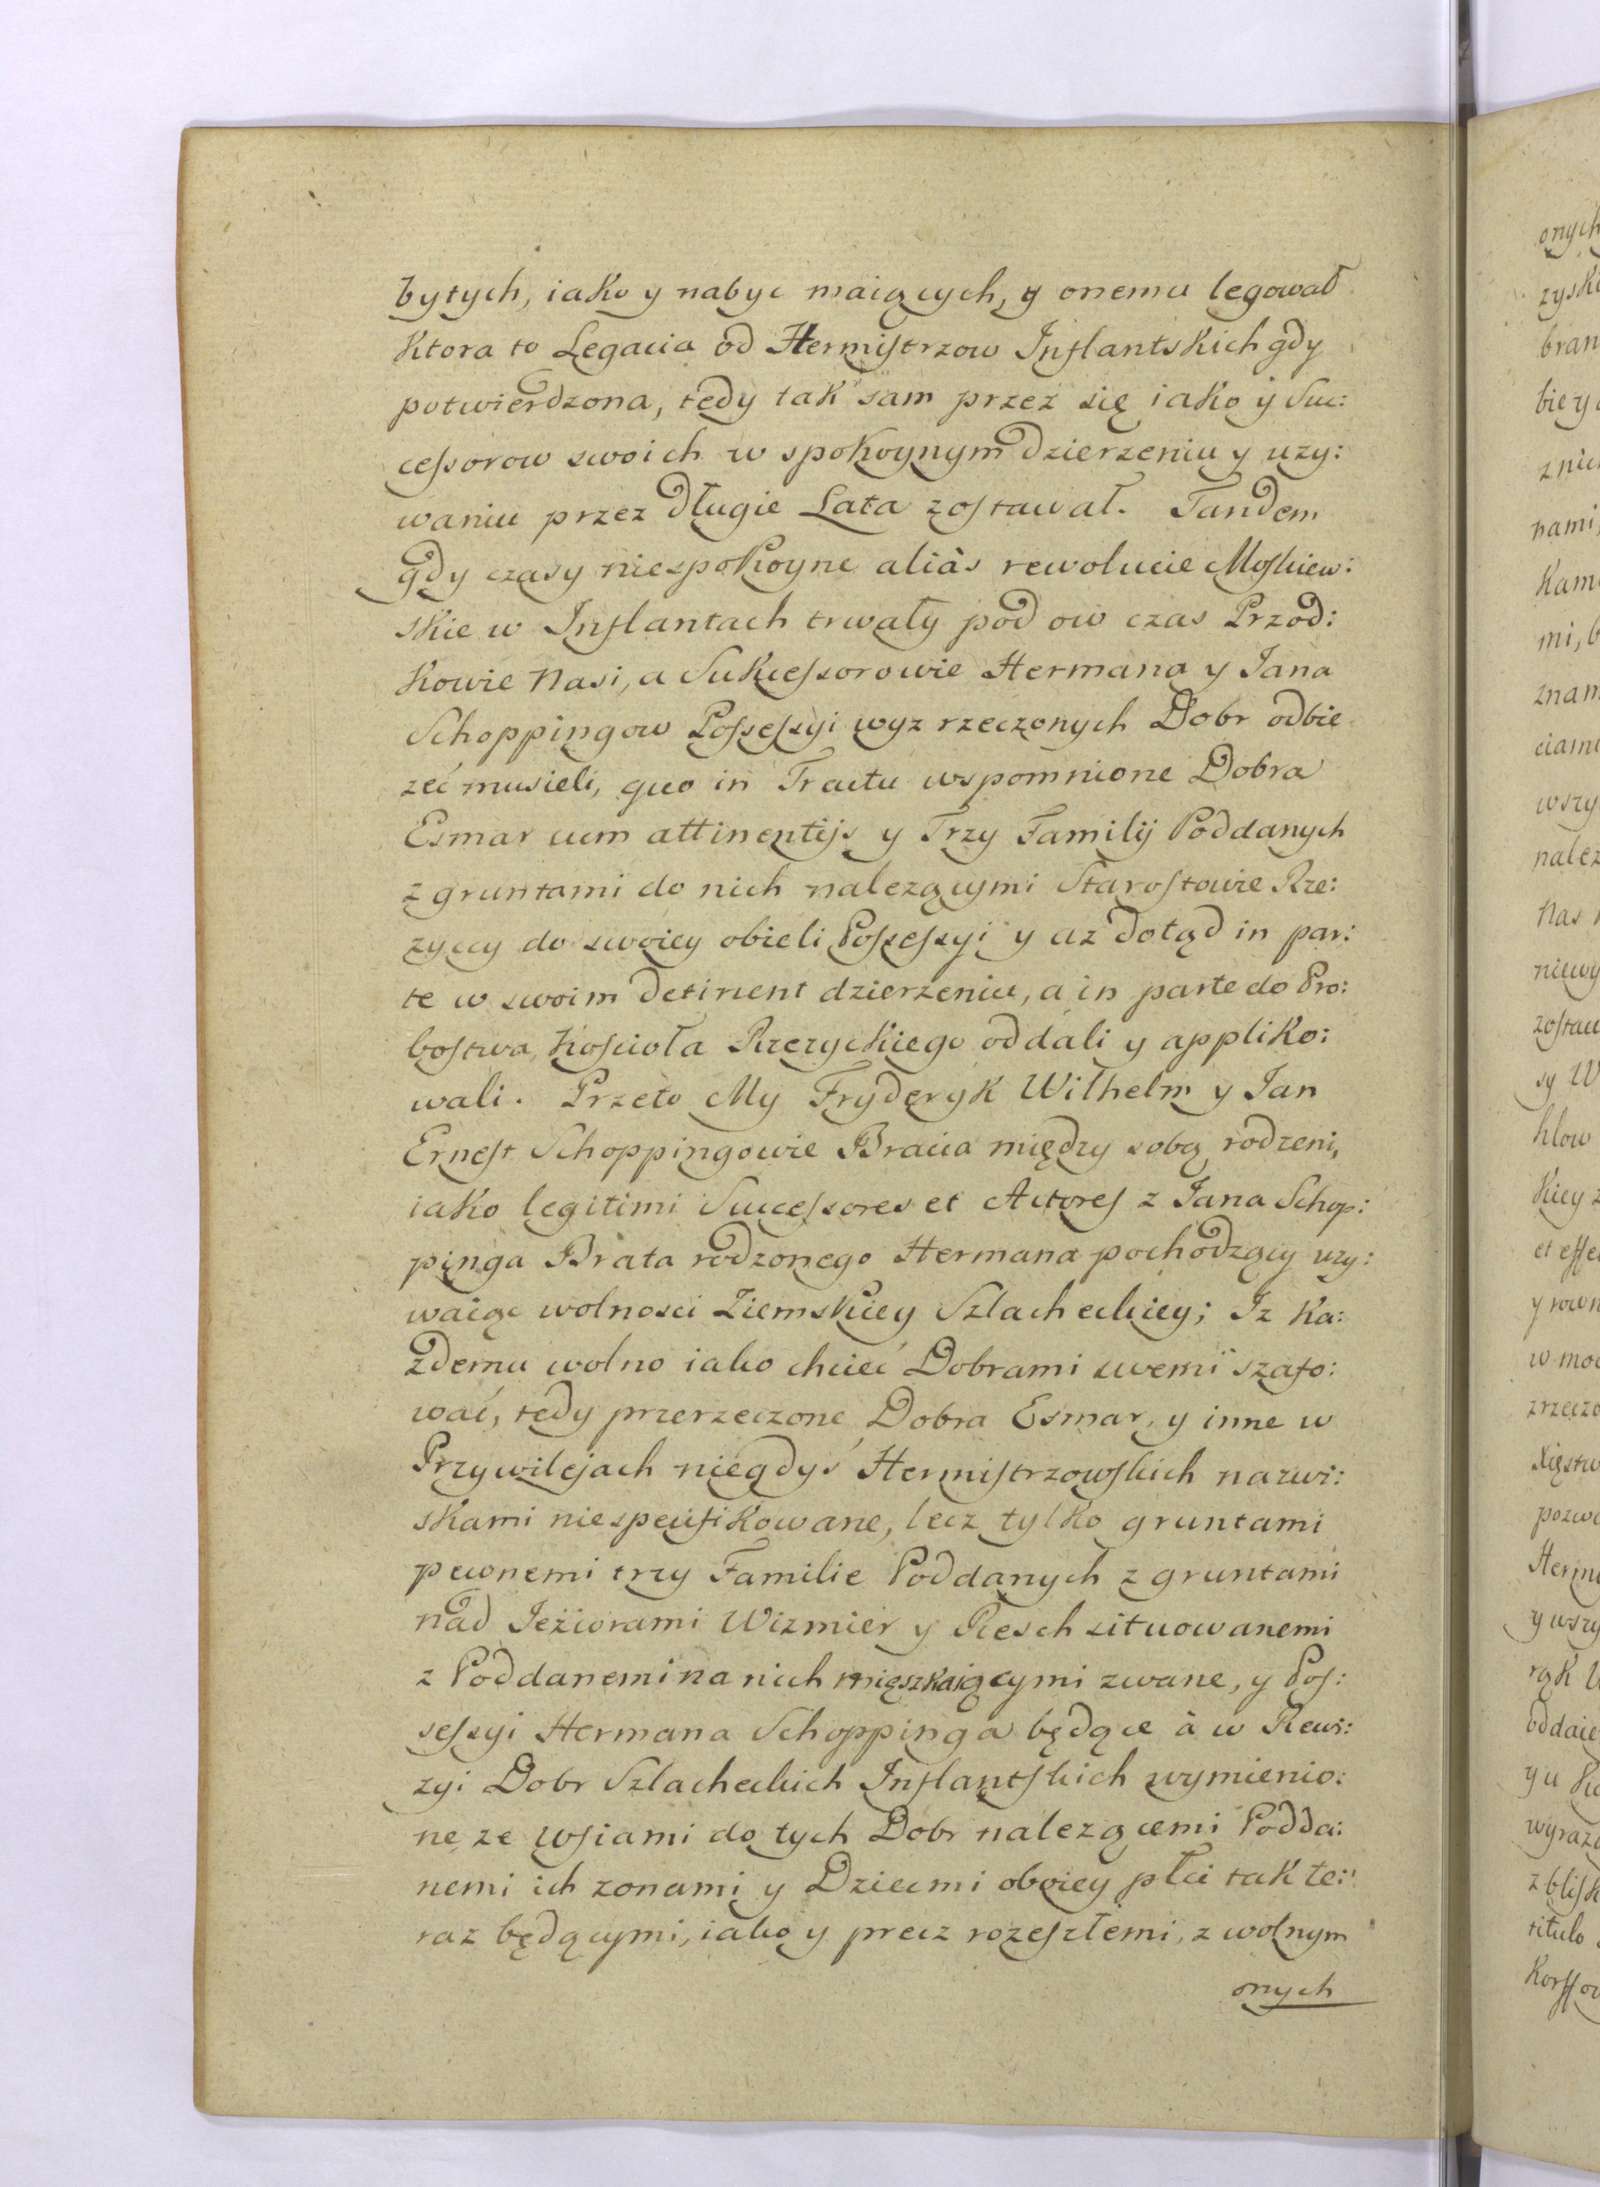 bytych, iako y nabyc maiących, y onemu legował
Ktora to Legacia od Hermistrzow Inflantskich gdy
potwierdzona, tedy tak sam przez się iako y Suc:
cessorow swoich w spokoynym dzierzeniu y uzy:
waniu przez długie Lata zostawał. Tandem
gdy czasy niespokoyne aliàs rewolucie Moskiew:
skie w Inflantach trwały pod ow czas Przod:
kowie Nasi, a Sukcessorowie Hermana y Jana
Schoppingow Possessyi wyz rzeczonych Dobr odbie
zeć musieli, quo in Tractu wspomnione Dobra
Esmar cum attinentijs y Trzy Familij Poddanych
z gruntami do nich nalezącymi Starostowie Rze:
zyccy do swoiey obieli Possessyi y az dotąd in par:
te w swoim detinent dzierzeniu, a in parte do Pro:
bostwa Koscioła Rzezyckiego oddali y appliko:
wali. Przeto My Fryderyk Wilhelm y Jan
Ernest Schoppingowie Bracia między sobą rodzeni,
iako legitimi Successores et Actores z Jana Schop:
pinga Brata rodzonego Hermana pochodzący uzy:
waiąc wolnosci Ziemskiey Szlacheckiey; Iz Ka:
zdemu wolno iako chcieć Dobrami swemi szafo:
wać, tedy przerzeczone Dobra Esmar, y inne w
Przywilejach niegdyś Hermistrzowskich nazwi:
skami niespecifikowane, lecz tylko gruntami
pewnemi trzy Familie Poddanych z gruntami
nad Jeżiorami Wizmier y Resch situowanemi
z Poddanemi na nich mięszkaiącymi zwane, y Pos:
sessyi Hermana Schoppinga będące à w Rewi:
zyi Dobr Szlacheckich Inflantskich wymienio:
ne ze wsiami do tych Dobr nalezącemi Podda:
nemi ich zonami y Dziecmi oboiey płci tak te:
raz będącymi, iako y precz rozeszłemi, z wolnym
onych